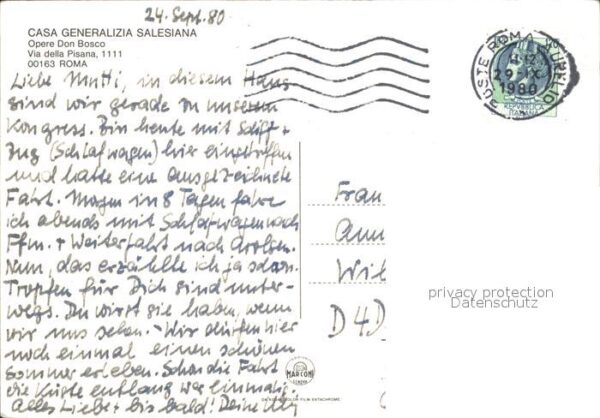 24. Sept. 80
CASA GENERALIZIA SALESIANA
Opere Don Bosco
Via della Pisana, 1111
00163 ROMA
Liebe Mutti, in diesem Haus
sind wir gerade zu unserem
Kongress. Bin heute mit Schiff +
Zug (Schlafwagen) hier eingetroffen
und hatte eine ausgezeichnete
Fahrt. Morgen in 8 Tagen fahre
ich abends mit Schlafwagen nach
Ffm. + Weiterfahrt nach Arolsen.
Nun, das erzählte ich ja schon.
Tropfen für Dich sind unter-
wegs. Du wirst sie haben, wenn
wir uns sehen. - Wir dürfen hier
noch einmal einen schönen
Sommer erleben. Schon die Fahrt
die Küste entlang war einmalig.
Alles Liebe + bis bald! Deine
POSTE ROMA
29-IX
1980
Frau
Ann
Wil
D4D
privacy protection
Datenschutz
MARCONI
GENOVA
DA KODAKCOLOR FILM EKTACHROME